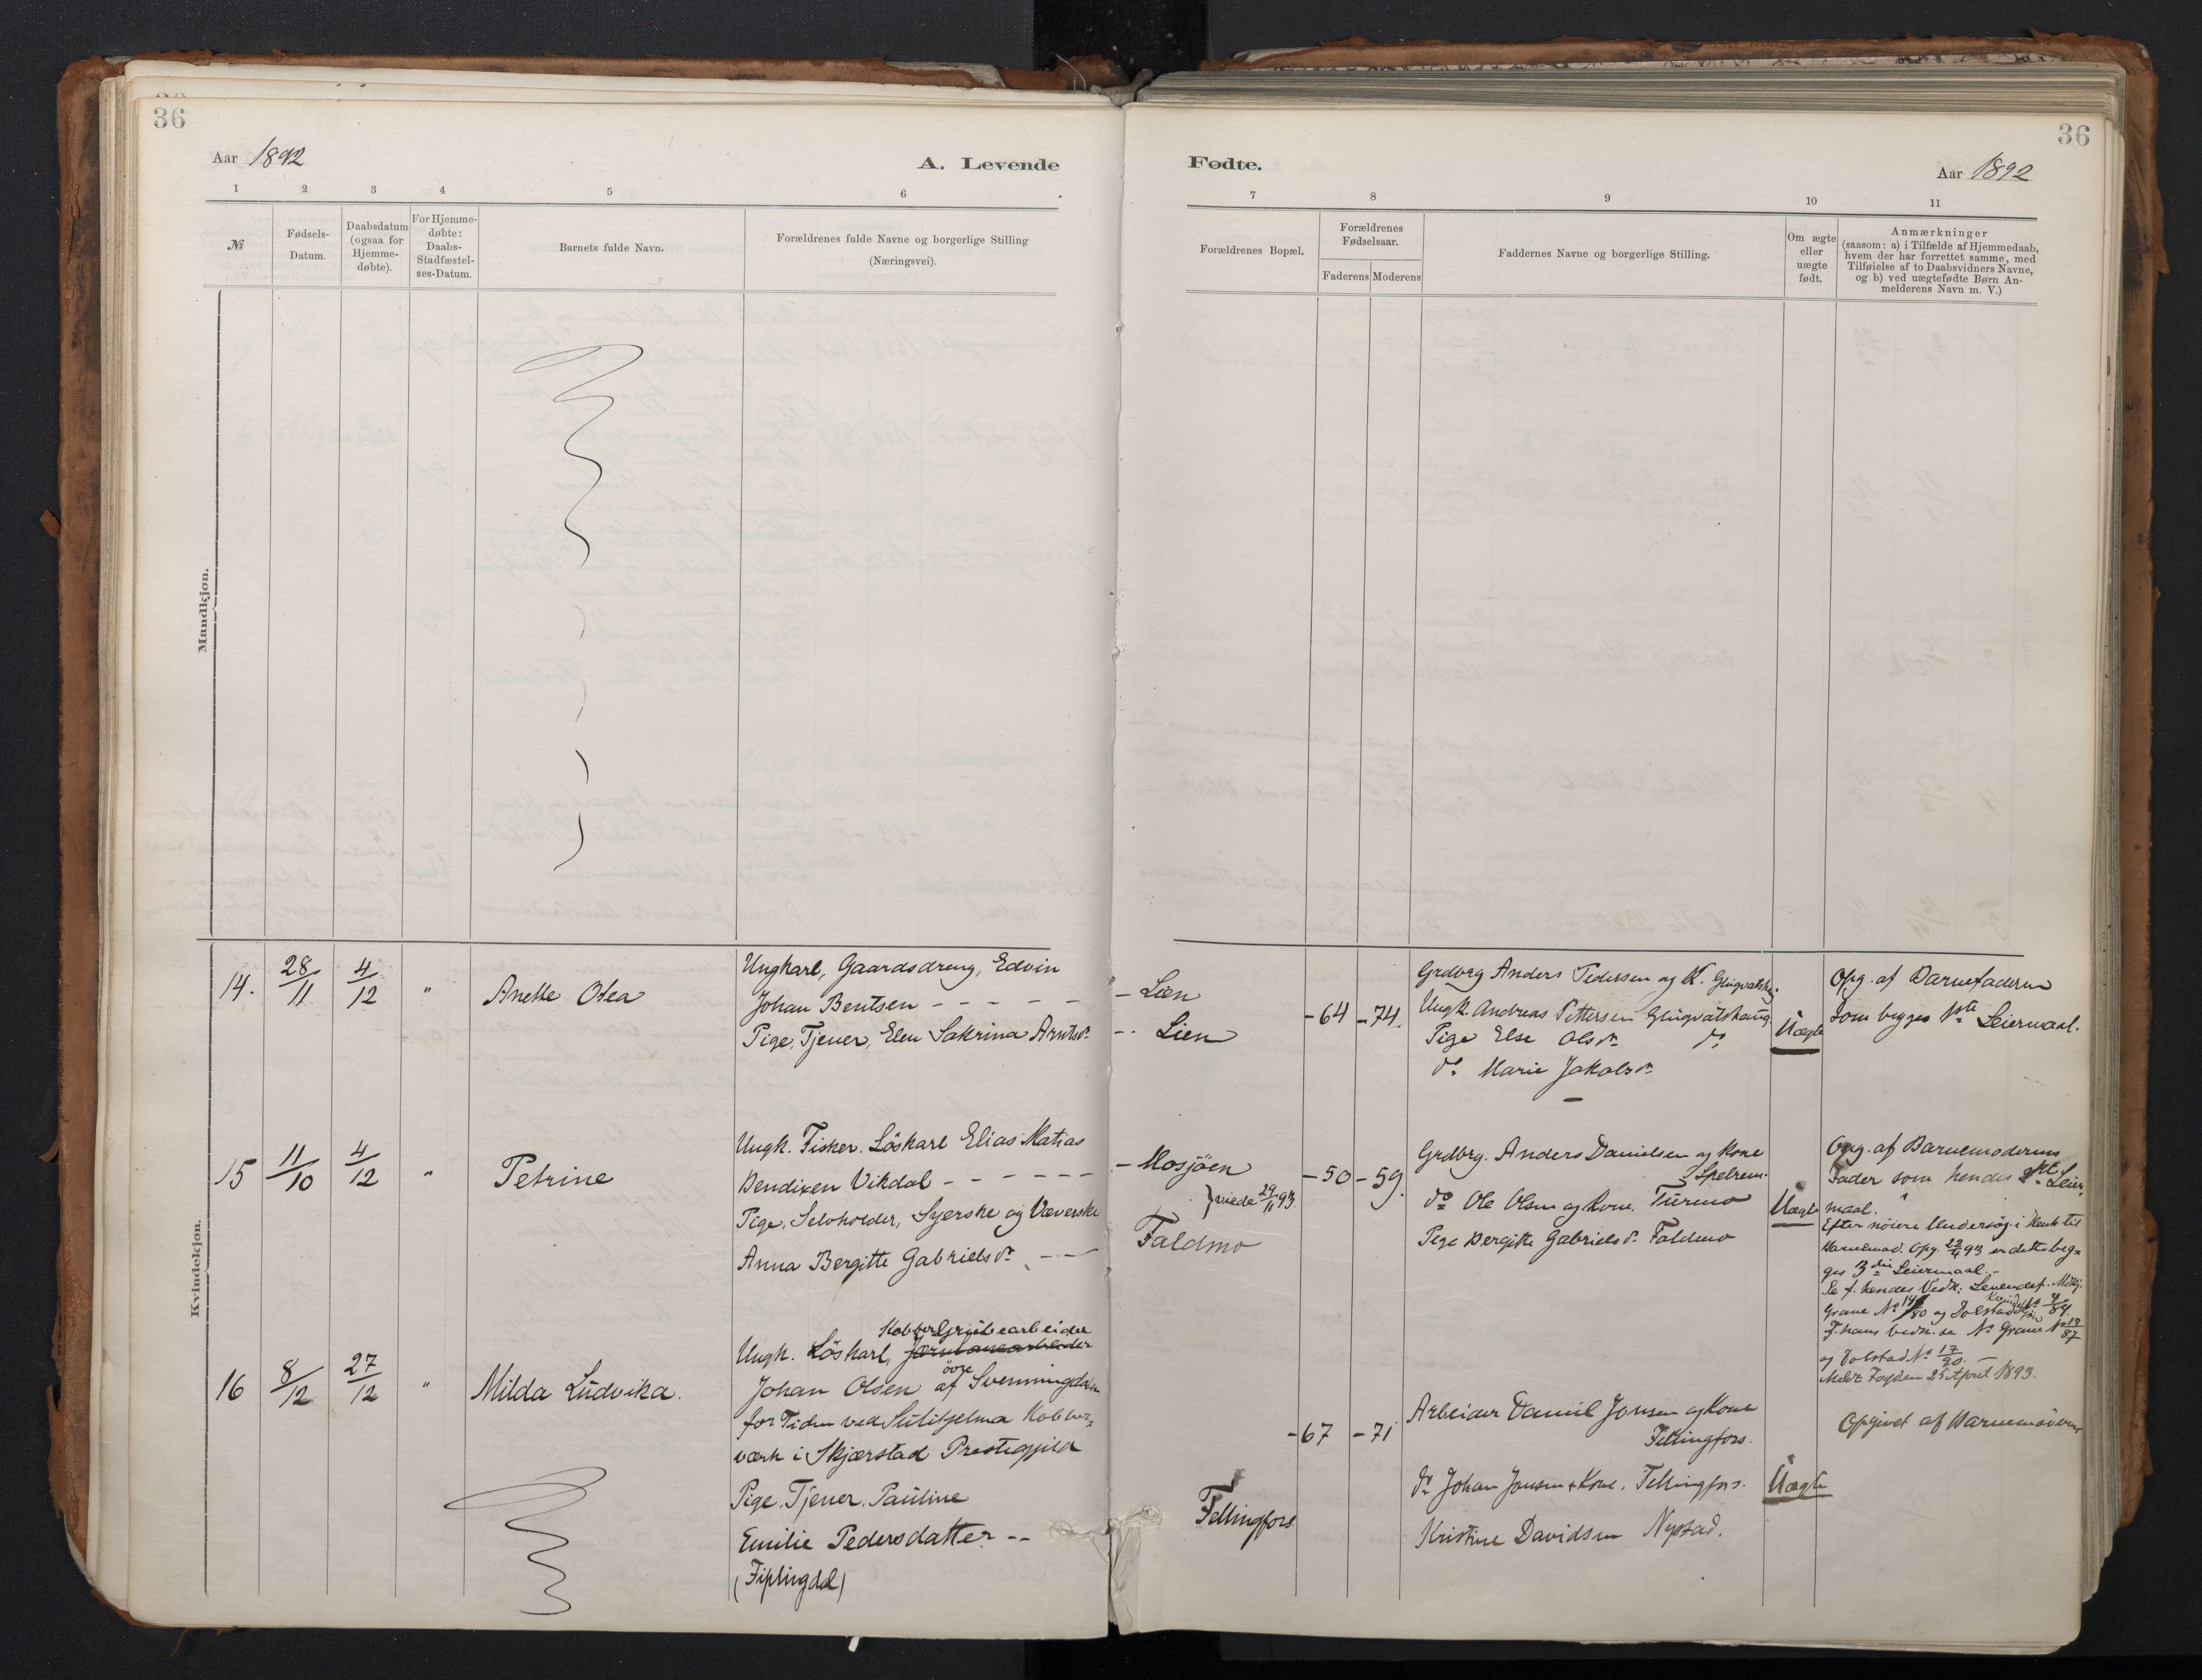 36
Aar 1892
A. Levende
1 2 3 4 5 6
№
Fødsels-
Datum.
Daabsdatum
(ogsaa for
Hjemme-
døbte).
For Hjemme-
døbte:
Daabs-
Stadfæstel-
ses-Datum.
Barnets fulde Navn.
Forældrenes fulde Navne og borgerlige Stilling
(Næringsvei).
Mandkjøn.
Kvindekjøn.
14. 28/11 4/12 " Anette Olea
Ungkarl, Gaardsdreng, Edvin
Johan Bentsen - - - - -
Pige, Tjener, Elen Sakrina Arntsdr.
15 11/10 4/12 " Petrine
Ungk. Fisker. Löskarl Elias Matias
Bendixen Vikdal - - - - - -
Pige, Selvholder, Syerske og Væverske
Anna Bergitte Gabrielsdr. - - -
16 8/12 27/12 " Milda Ludvika.
Kobbergrubearbeider
Ungk. Löskarl, Jernbanearbeider
övre
Johan Olsen af Svenningdalen
for Tiden ved Sulitjelma Kobber-
værk i Skjærstad Prestegjeld
Pige. Tjener. Pauline
Emilie Pedersdatter - -
(Fiplingdal)
36
Fødte.
Aar 1892
7 8 9 10 11
Forældrenes Bopæl.
Forældrenes
Fødselsaar.
Faderens Moderens
Faddernes Navne og borgerlige Stilling.
Om ægte
eller
uægte
født.
Anmærkninger
(saasom: a) i Tilfælde af Hjemmedaab,
hvem der har forrettet samme, med
Tilføielse af to Daabsvidners Navne,
og b) ved uægtefødte Børn An-
melderens Navn m. V.)
- Lien
- - Lien
-64 -74.
Grdbrg Anders Pedersen og K.
Ungk. Andreas Pettersen
Pige Else Olsdr. do.
do. Marie Jakobsdr.
Uægte
Opg. af Barnefaderen
som begges 1ste Leiermaal.
- Mosjöen
} viede 29/11 93.
Faldmo
-50 -59.
Grdbrg. Anders Danielsen og Kone
do Ole Olsen og Kone. Turmo
Pige Bergitte Gabrielsdr. Faldmo
Uægte
Opg. af Barnemoderens
Fader som hendes 2det Leier-
maal.
Efter nöiere Undersög. i Henh. til
Barnemod. Opg. 23/4 93 er dette beg-
ges 3die Leiermaal. -
og Dolstad No 17/90. -
Meldt Fogden 25 April 1893.
-67 -71
Fellingfors.
Arbeider Daniel Jonsen og Kone
Fellingfors.
do Johan Jonsen + Kone. Fellingfors.
Kristine Davidsen Nystad.
Uægte
Opgivet af Barnemoderen